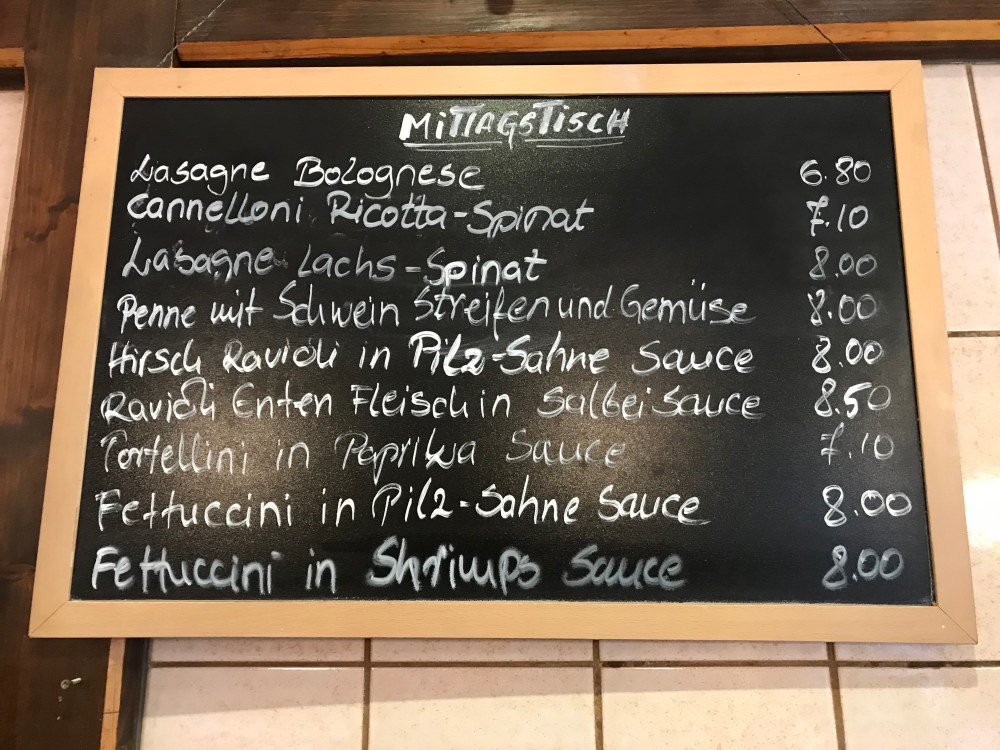 MiTTAGSTiSCH
Lasagne Bolognese 6.80
Cannelloni Ricotta-Spinat 7.10
Lasagne Lachs-Spinat 8.00
Penne mit Schwein Streifen und Gemüise 8.00
Hirsch Ravioli in Pilz-Sahne Sauce 8.00
Ravioli Enten Fleisch in Salbei Sauce 8.50
Tortellini in Paprika Sauce 7.10
Fettuccini in Pilz-Sahne Sauce 8.00
Fettuccini in Shrimps Sauce 8.00